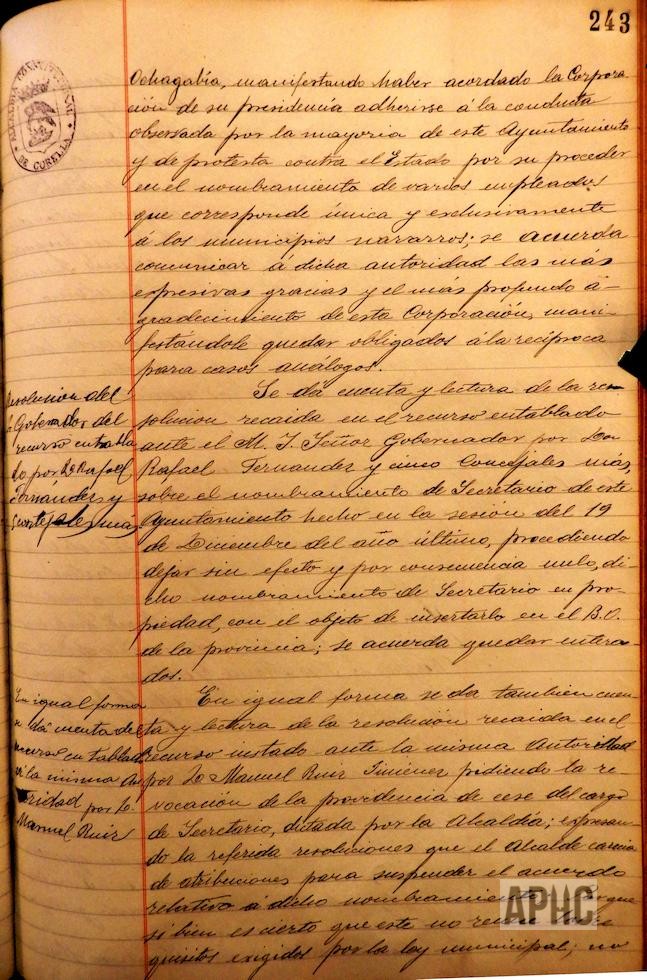 243
ALCALDIA CONSTITUCIONAL
DE CORELLA
Ochagabía, manifestando haber acordado la Corpora-
ción de su presidencia adherirse á la conducta
observada por la mayoria de este Ayuntamiento
y de protesta contra el Estado por su proceder
en el nombramiento de varios empleados
que corresponde única y exclusivamente
á los municipios navarros; se acuerda
comunicar á dicha autoridad las más
expresivas gracias y el más profundo a-
gradecimiento de esta Corporación, mani-
festándole quedar obligados á la recíproca
para casos análogos.
Resolucion del
Gobernador del
recurso entabla
do por Dn Rafael
Fernández y
5 concejales más
Se da cuenta y lectura de la re-
solucion recaida en el recurso entablado
ante el M. I. Señor Gobernador por Don
Rafael Fernandez y cinco Concejales más,
sobre el nombramiento de Secretario de este
Ayuntamiento hecho en la sesión del 19
de Diciembre del año último, procediendo
dejar sin efecto y por consecuencia nulo, di-
cho nombramiento de Secretario en pro-
piedad, con el objeto de insertarlo en el B.O.
de la provincia; se acuerda quedar entera-
dos.
En igual forma
se dá cuenta del
recurso entablado
la misma Au
toridad por Dn
Manuel Ruiz
En igual forma se da tambien cuen-
ta y lectura de la resolución recaida en el
recurso instado ante la misma Autoridad
por Dn Manuel Ruiz Jiménez pidiendo la re-
vocación de la providencia de cese del cargo
de Secretario, dictada por la Alcaldía; expresan
do la referida resoluciones que el Alcalde carecia
de atribuciones para suspender el acuerdo
relativo á dicho nombramiento porque
si bien es cierto que este no
quisitos exigidos por la ley municipal; no
APHC